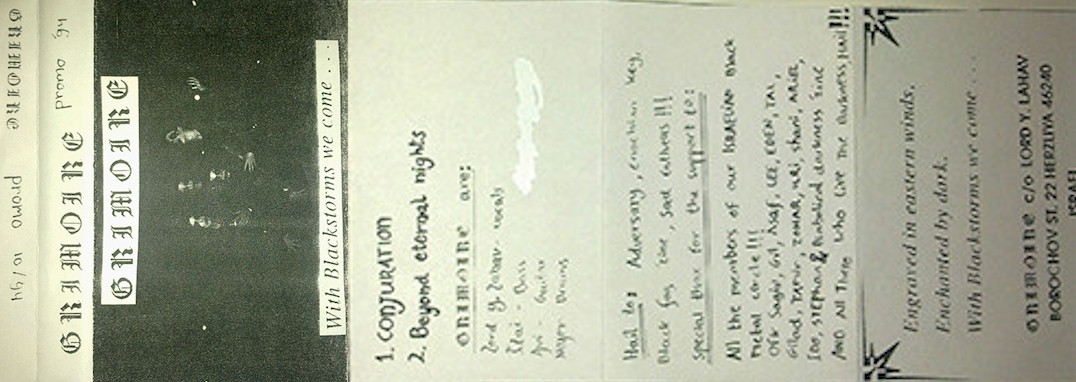 GRIMOIRE
promo 10/94
GRIMOIRE promo '94
GRIMOIRE
With Blackstorms we come . . .
1. CONJURATION
2. Beyond eternal nights
GRIMOIRE are:
Lord y. Lahav - vocals
- Bass
- Guitar
- Drums
Hail to: Adversary, enochian key,
Black zine, Sad euthens !!!
Special thanx for the support to:
All the members of our ISRAELIAN Black
Metal circle !!!
Ofir Gal, Asaf, LEE, EDEN, TAL,
Gilad, TAMIR, ZOHAR, URI, Shani, ARIEL,
Ido, STEPHAN & Diabolical darkness zine
AND All Those who Live The Darkness Hail !!!
Engraved in eastern winds.
Enchanted by dark.
With Blackstorms we come . . .
GRIMOIRE c/o LORD Y. LAHAV
BOROCHOV ST. 22 HERZLIYA 46240
ISRAEL